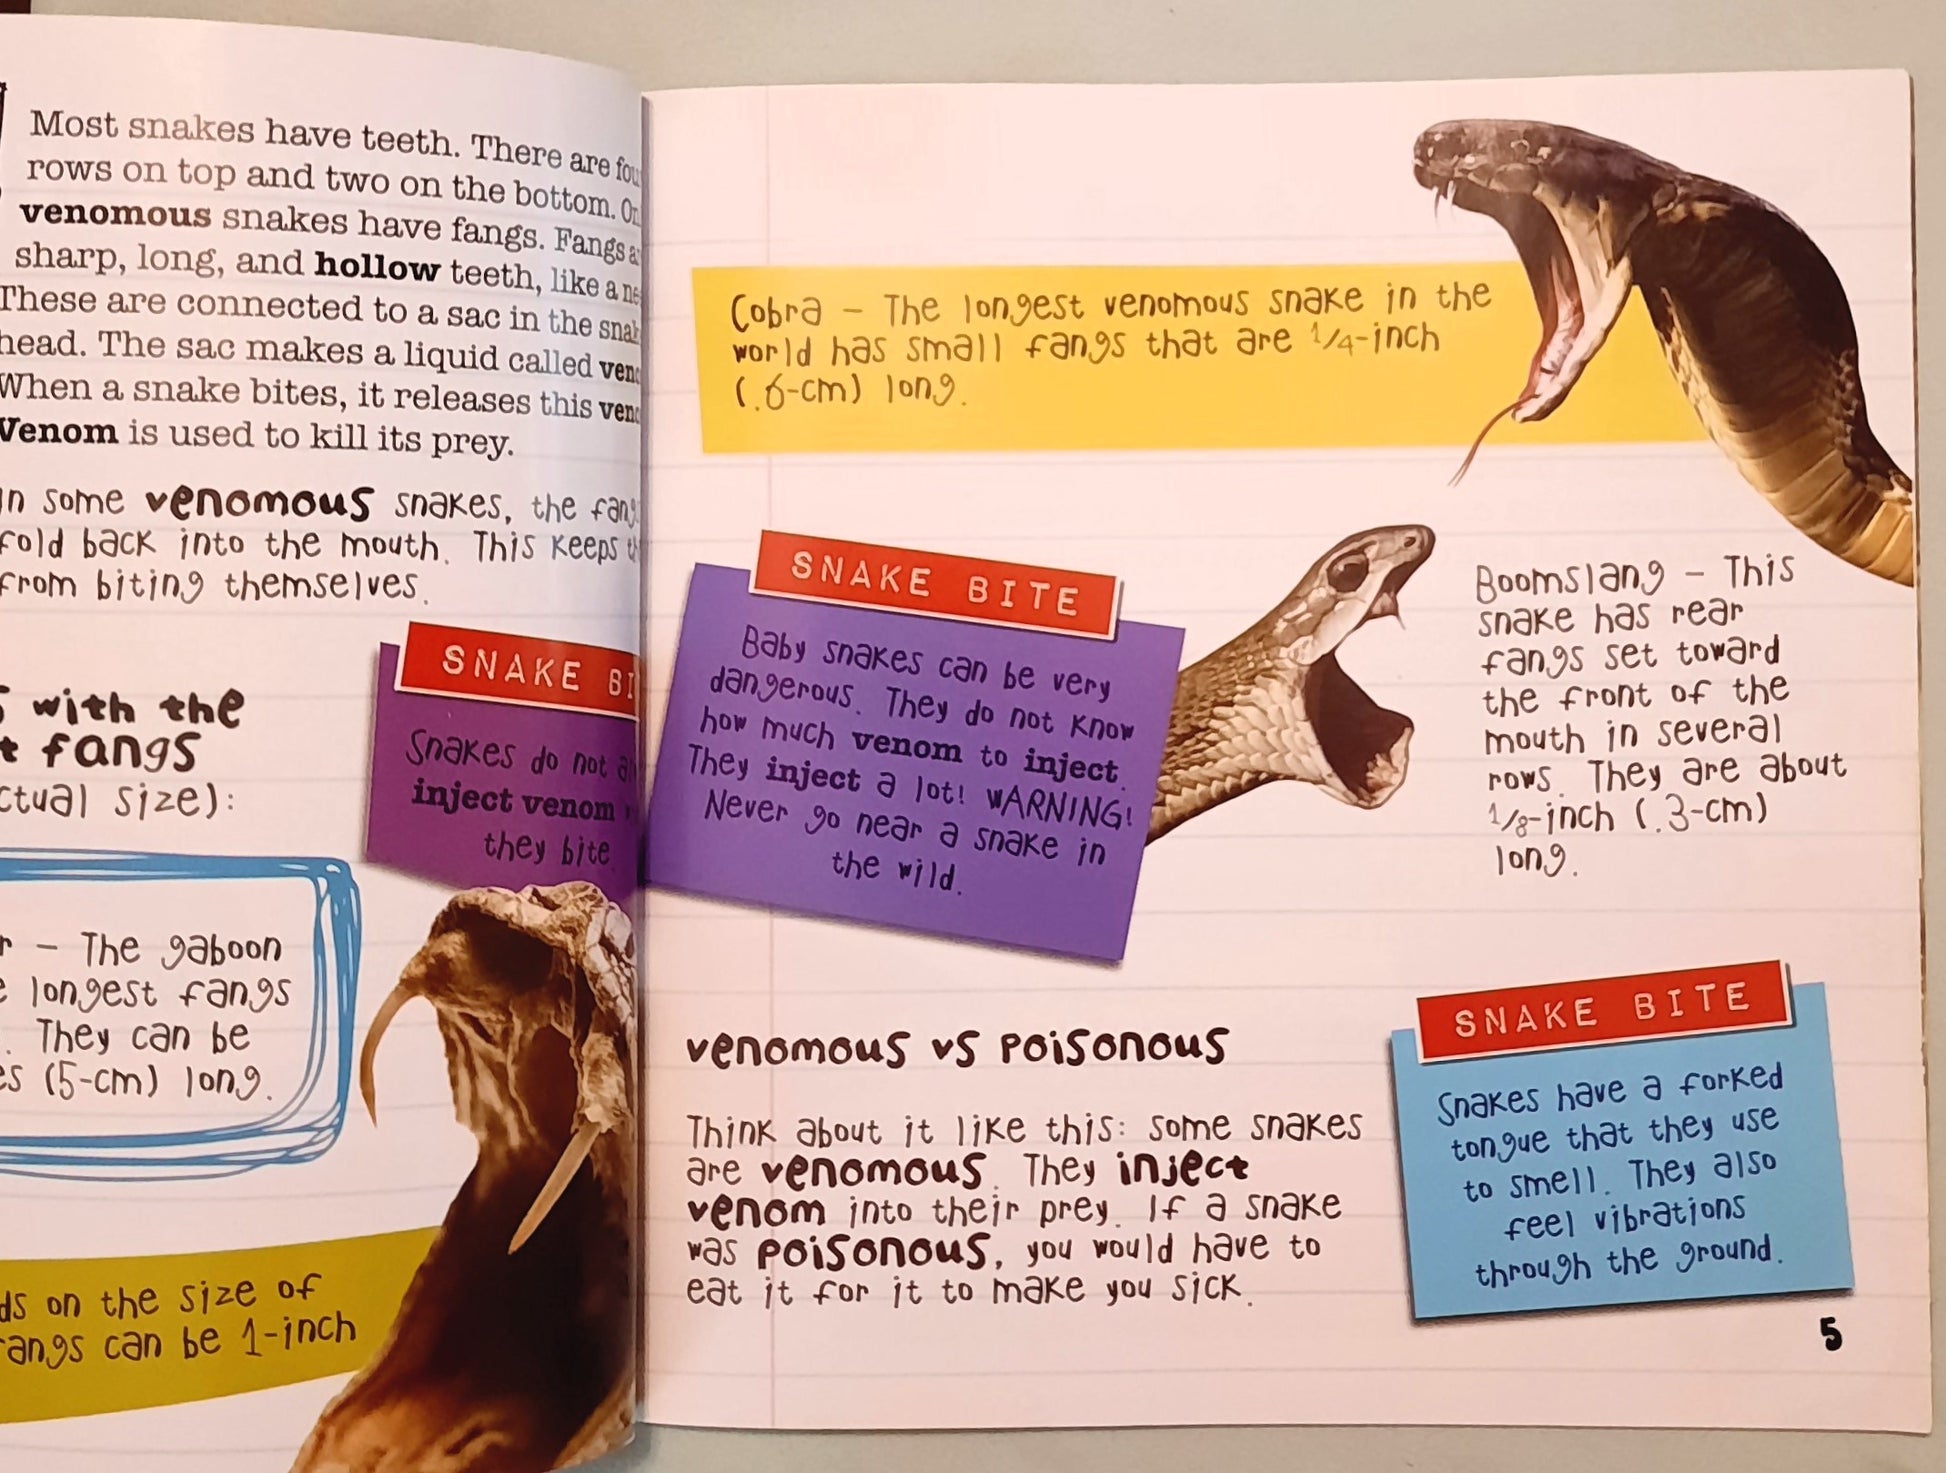 Most snakes have teeth. There are
rows on top and two on the bottom.
venomous snakes have fangs. Fangs
sharp, long, and hollow teeth, like a
These are connected to a sac in the
head. The sac makes a liquid called
When a snake bites, it releases this
Venom is used to kill its prey.
In some venomous snakes, the
fold back into the mouth. This keeps
from biting themselves.
with the
fangs
size):
SNAKE
Snakes do not
inject venom
they bite
– The gaboon
longest fangs
They can be
(5-cm) long.
on the size of
fangs can be 1-inch
Cobra – The longest venomous snake in the
world has small fangs that are 1/4-inch
(.6-cm) long.
SNAKE BITE
Baby snakes can be very
dangerous. They do not know
how much venom to inject.
They inject a lot! WARNING!
Never go near a snake in
the wild.
Boomslang – This
snake has rear
fangs set toward
the front of the
mouth in several
rows. They are about
1/8-inch (.3-cm)
long.
venomous vs poisonous
Think about it like this: some snakes
are venomous. They inject
venom into their prey. If a snake
was poisonous, you would have to
eat it for it to make you sick.
SNAKE BITE
Snakes have a forked
tongue that they use
to smell. They also
feel vibrations
through the ground.
5